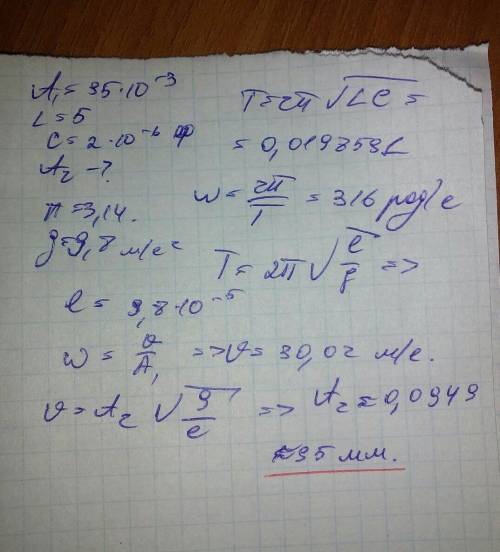 A₁ = 95·10⁻³
L = 5
C = 2·10⁻⁶ ф
A₂ - ?
π = 3,14.
g = 9,8 м/с²
T = 2π √LC =
= 0,0198591
ω = 2π/T = 316 рад/с
T = 2π √(l/g) =>
l = 9,8·10⁻⁵
ω = υ/A₁ => υ = 30,02 м/с.
υ = A₂ √(g/l) => A₂ ≈ 0,0949
≈95 мм.